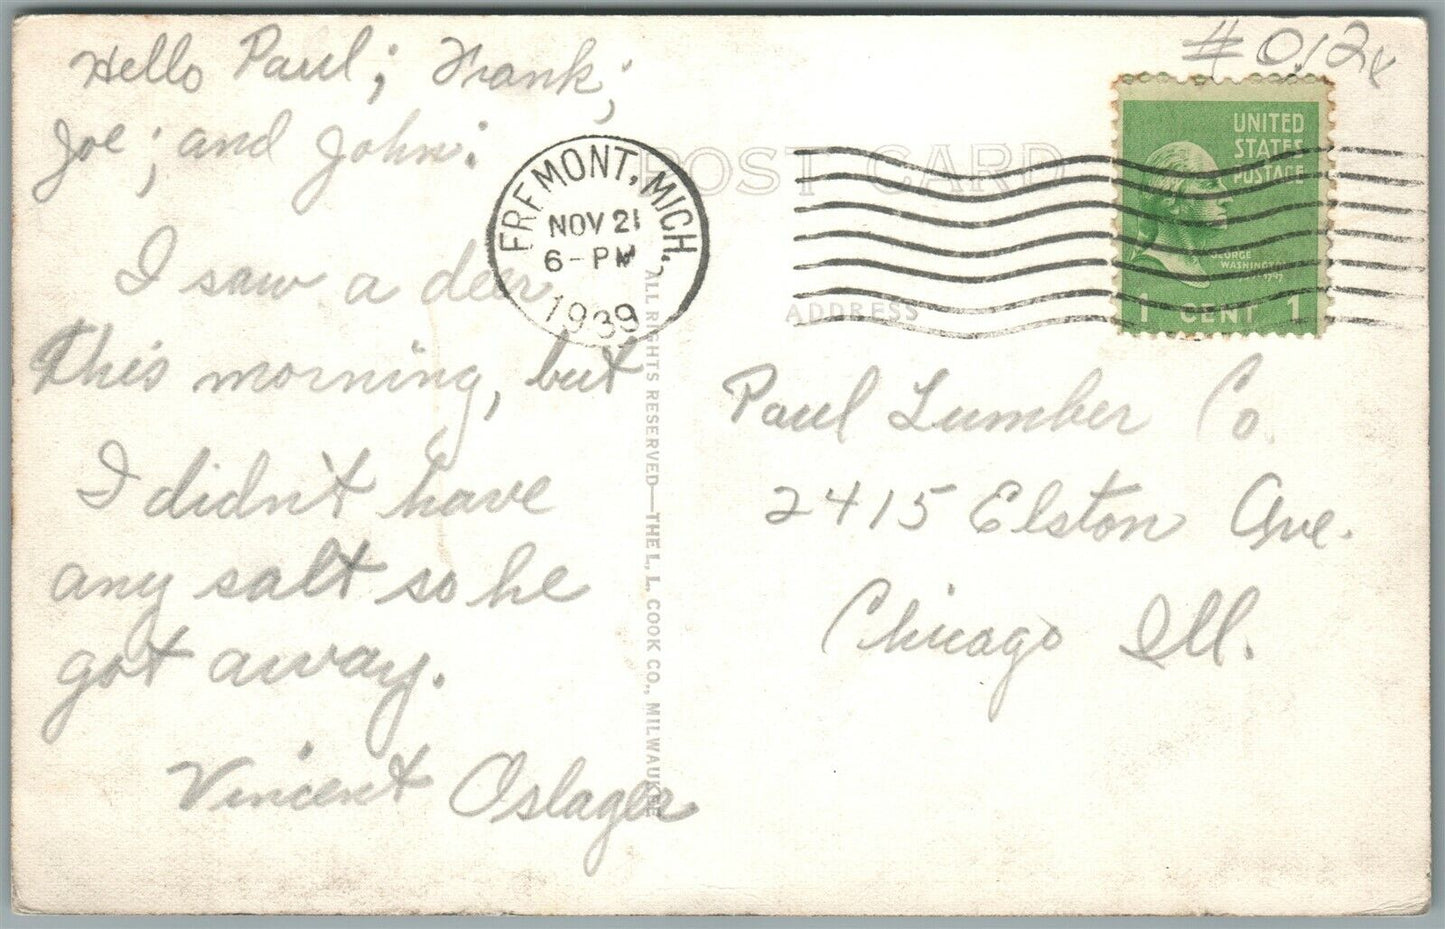 Hello Paul; Frank;
Joe; and John:
I saw a deer
this morning, but
I didn't have
any salt so he
got away.
Vincent Oslager
FREMONT, MICH.
NOV 21
6-PM
1939
ALL RIGHTS RESERVED—THE L. L. COOK CO., MILWAUKEE
POST CARD
ADDRESS
UNITED
STATES
POSTAGE
GEORGE
WASHINGTON
1 CENT 1
Paul Lumber Co.
2415 Elston Ave.
Chicago Ill.